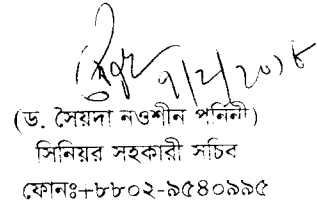 ৭/২/২০১৮
(ড. সৈয়দা নওশীন পর্নিনী)
সিনিয়র সহকারী সচিব
ফোনঃ+৮৮০২-৯৫৪০৯৯৫